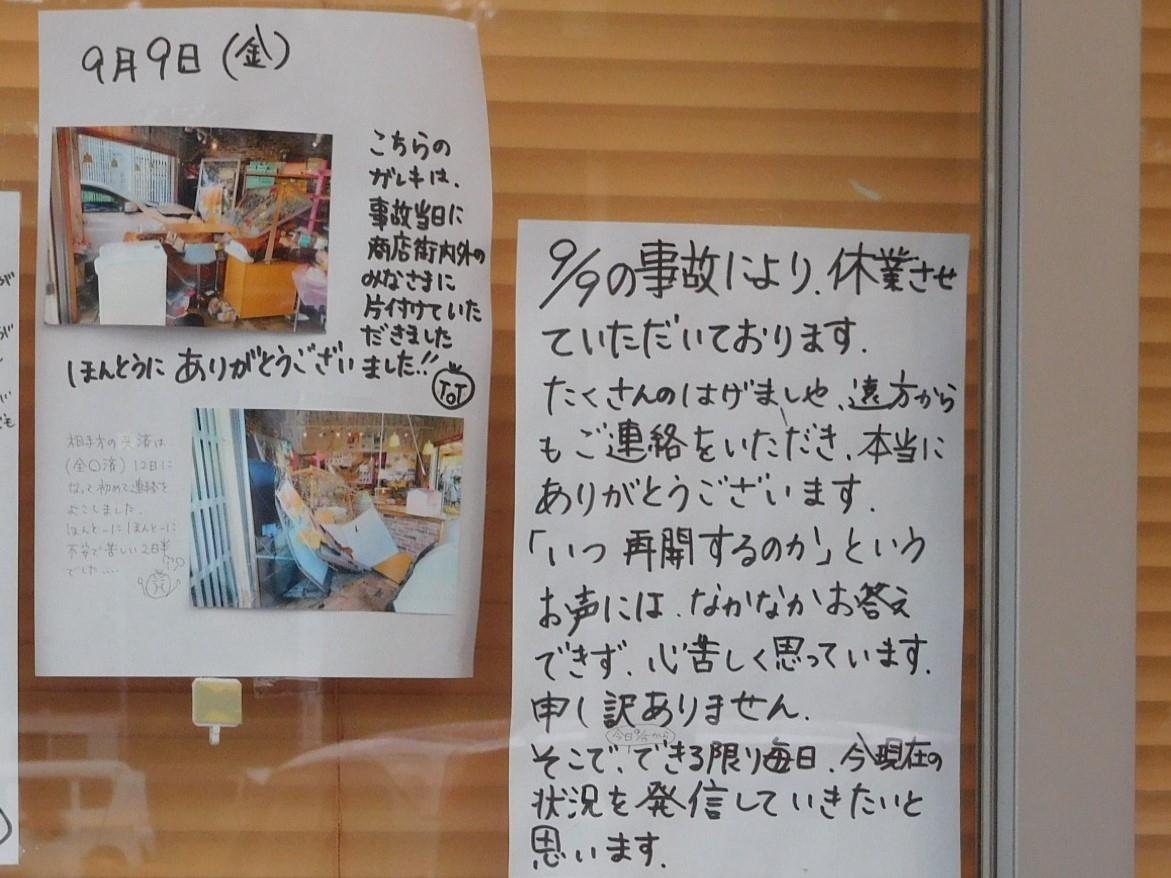 9月9日(金)
こちらの
ガレキは、
事故当日に
商店街内外の
みなさまに
片付けていた
だきました
ほんとうに ありがとうございました!!
相手方の共済は
(全〇済) 12日に
なって初めて連絡を
よこしました。
ほんとーにほんとーに
不安で苦しい2日半
でした....
9/9の事故により、休業させ
ていただいております。
たくさんのはげましや、遠方から
もご連絡をいただき、本当に
ありがとうございます。
「いつ再開するのか」という
お声には、なかなかお答え
できず、心苦しく思っています。
申し訳ありません。
そこで、できる限り毎日、今現在の
状況を発信していきたいと
思います。